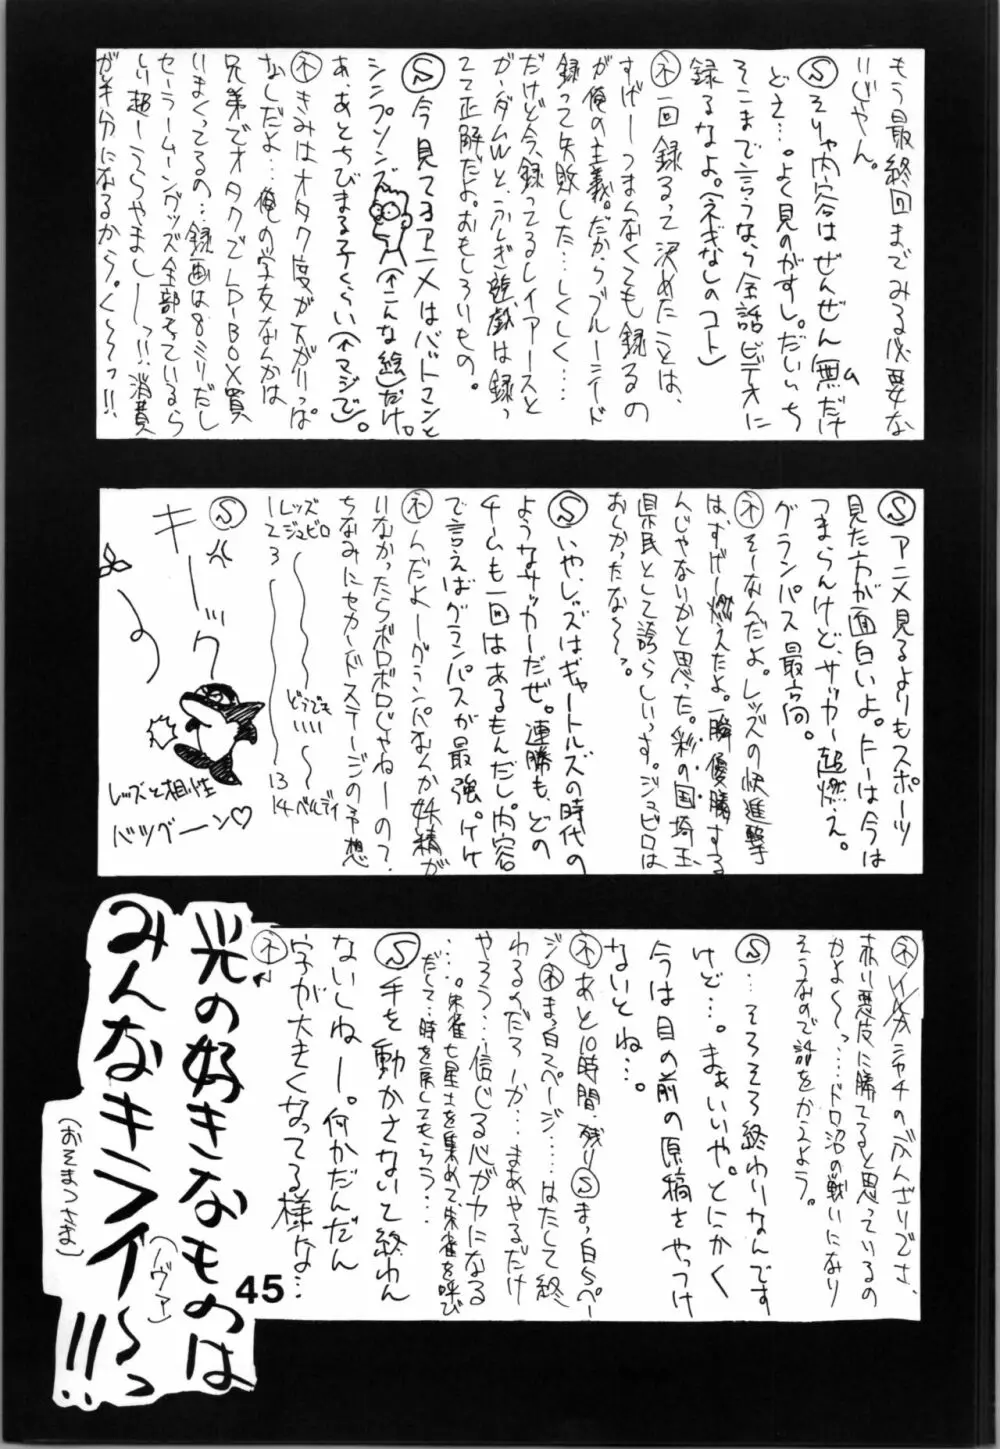 もう最終回までみる必要な
いじゃん。
Ⓢそりゃ内容はぜんぜん無(ム)だけ
どさ…。よく見のがすし。だいいち
そこまで言うなら全話ビデオに
録るなよ。(ネギなしのコト)
ネ一回録るって決めたことは、
すげーつまんなくても録るの
が俺の主義。だからブルーシード
録って失敗した…しくしく…
だけど今、録ってるレイアースと
ガンダムWと、ふしぎ遊戯は録っ
てて正解だよ。おもしろいもの。
Ⓢ今見てるアニメはバットマンと
シンプソンズ(↑こんな絵)だけ。
あ、あとちびまる子くらい(↑マジで)。
ネきみはオタク度が下がりっぱ
なしだよ…俺の学友なんかは
兄弟でオタクでLD-BOX買
いまくってるの…録画は8ミリだし
セーラームーングッズ全部そろっているら
しい超ーうらやましーっ!!消費
が半分になるから。く~~っ!!
Ⓢアニメ見るよりもスポーツ
見た方が面白いよ。Fーは今は
つまらんけど、サッカー超燃え。
グランパス最高。
ネそーなんだよ。レッズの快進撃
はすげー燃えたよ。一瞬優勝する
んじゃないかと思った。彩の国埼玉
県民として誇らしいっす。ジュビロは
おしかったな~っ。
Ⓢいや、レッズはギャートルズの時代の
ようなサッカーだぜ。連勝も、どの
チームも一回はあるもんだし内容
で言えばグランパスが最強。ケケ
ネんだよーグランパスなんか妖精が
いなかったらボロボロじゃねーの?
ちなみにセカンドステージの予想
1 レッズ
2 ジュビロ
3
どうでも
いい
13
14 ベルディ
Ⓢ
キーック
の
レッズと相性
バツグーン♡
ネ
赤い悪皮に勝てると思っているの
かよ~っ…ドロ沼の戦いになり
そうなので話をかえよう。
Ⓢ…そろそろ終わりなんです
けど…。まぁいいや。とにかく
今は目の前の原稿をやっつけ
ないとね…。
ネあと10時間、残りⓈまっ白5ペー
ジネまっ白5ページ……はたして終
わるのだろーか…まあやるだけ
やろう…信じる心が力になる
…。朱雀七星士を集めて朱雀を呼び
だして…時を戻してもらう…
Ⓢ手を動かさないと終わん
ないしねー。何かだんだん
字が大きくなってる様な…
ネ
光の好きなものは
みんなキライ~っ!!
(ノヴァ)
(おそまつさま)
45